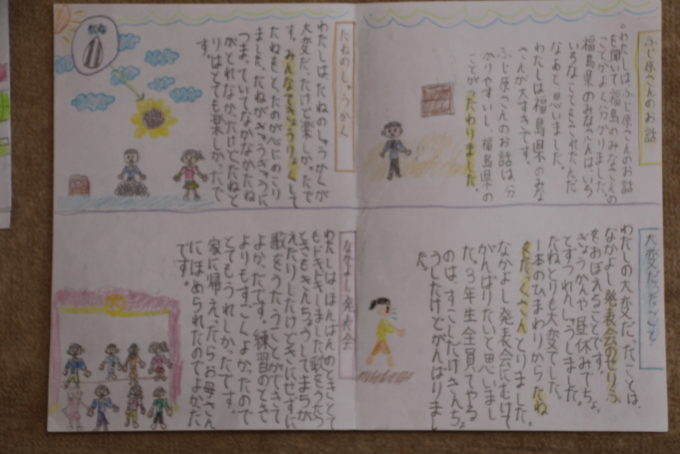 ふじ原さんのお話
わたしは、ふじ原さんのお話
を聞いて、福島のみなさんの
ことがよく分かりました。
福島県のみなさんはいろ
いろなこともされたんだ
なあと思いました。
わたしは福島県のみな
さんが大すきです。
ふじ原さんのお話は、分
かりやすいし、福島県の
ことが
つたわりました。
たねのしゅうかく
わたしはたねのしゅうかくが
大変だったけど楽しかったで
す。みんなできょうりょくして
たねをとったのが心にのこり
ました。たねがぎゅうぎゅうに
つまっていてなかなかたね
がとれなかったけどたねと
りはとても楽しかったで
す。
たね
大変だったこと
わたしの大変だったことは、
なかよし発表会のせりふ
をおぼえることです。
ぎょうかんや昼休みでも、
とてもれんしゅうしました。
たねとりも大変でした。
1本のひまわりからたね
がたくさんとりました。
なかよし発表会にむけて
がんばりたいと思いまし
た。3年生全員でやる
のは、すこしだけきんちょ
うしたけどがんばりまし
た。
なかよし発表会
わたしはほんばんのときとて
もドキドキしました。歌をうたう
ときもきんちょうしてまちが
えたりしたけどきにせずに
歌をうたうことができて
よかったです。練習のとき
よりもすごくよかったので
とてもうれしかったです。
家に帰ったらお母さん
にほめられたのでよかった
です。